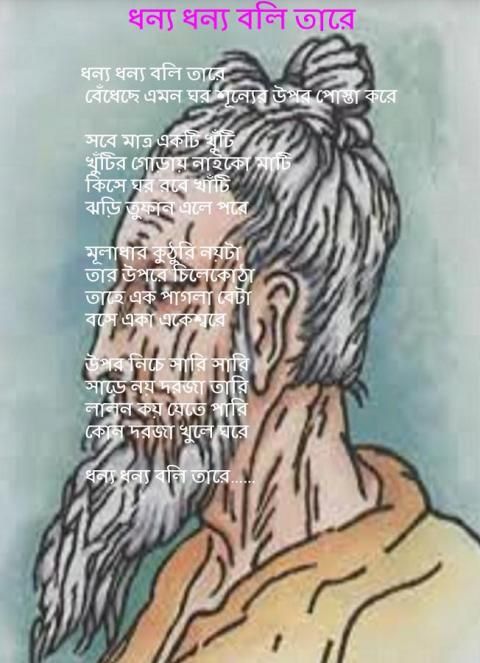 ধন্য ধন্য বলি তারে
ধন্য ধন্য বলি তারে
বেঁধেছে এমন ঘর শূন্যের উপর পোস্তা করে
সবে মাত্র একটি খুঁটি
খুঁটির গোড়ায় নাইকো মাটি
কিসে ঘর রবে খাঁটি
ঝড়ি তুফান এলে পরে
মূলাধার কুঠুরি নয়টা
তার উপরে চিলেকোঠা
তাহে এক পাগলা বেটা
বসে একা একেশ্বরে
উপর নিচে সারি সারি
সাড়ে নয় দরজা তারি
লালন কয় যেতে পারি
কোন দরজা খুলে ঘরে
ধন্য ধন্য বলি তারে......